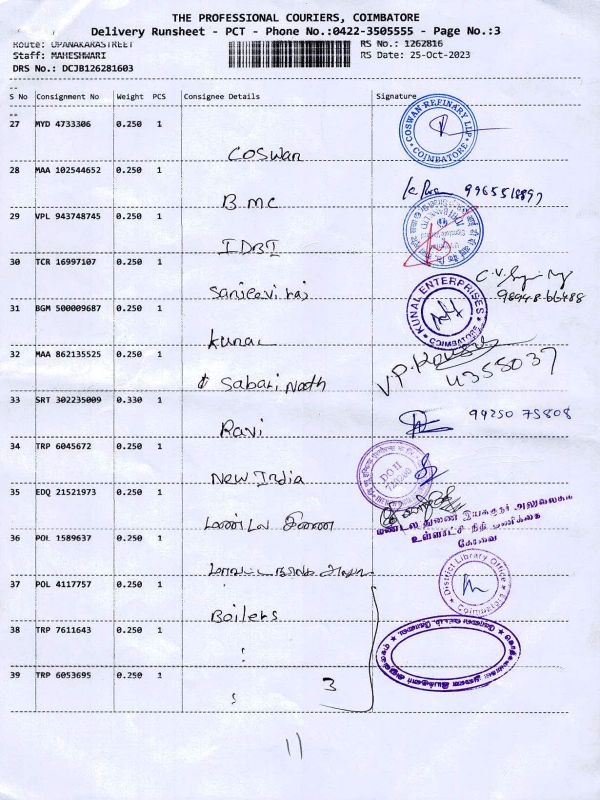 THE PROFESSIONAL COURIERS, COIMBATORE
Delivery Runsheet - PCT - Phone No.:0422-3505555 - Page No.:3
Route: OPANAKARASTREET RS No.: 1262816
Staff: MAHESHWARI RS Date: 25-Oct-2023
DRS No.: DCJB126281603
S No Consignment No Weight PCS Consignee Details Signature
27 MYD 4733306 0.250 1
COSWAN REFINARY LLP
COIMBATORE
Coswan
28 MAA 102544652 0.250 1
BMC
9965518897
29 VPL 943748745 0.250 1
IDBI
30 TCR 16997107 0.250 1
Sanjeevi raj
98948 66488
31 BGM 500009687 0.250 1
KUNAL ENTERPRISES
COIMBATORE
Kunal
32 MAA 862135525 0.250 1
Sabari Nath
4355037
33 SRT 302235009 0.330 1
Ravi
99250 75808
34 TRP 6045672 0.250 1
New India
35 EDQ 21521973 0.250 1
மண்டல துணை இயக்குநர் அலுவலகம்
உள்ளாட்சி நிதி தணிக்கை
கோவை
36 POL 1589637 0.250 1
District Library Office
Coimbatore
37 POL 4117757 0.250 1
Boilers
38 TRP 7611643 0.250 1
39 TRP 6053695 0.250 1
3
11